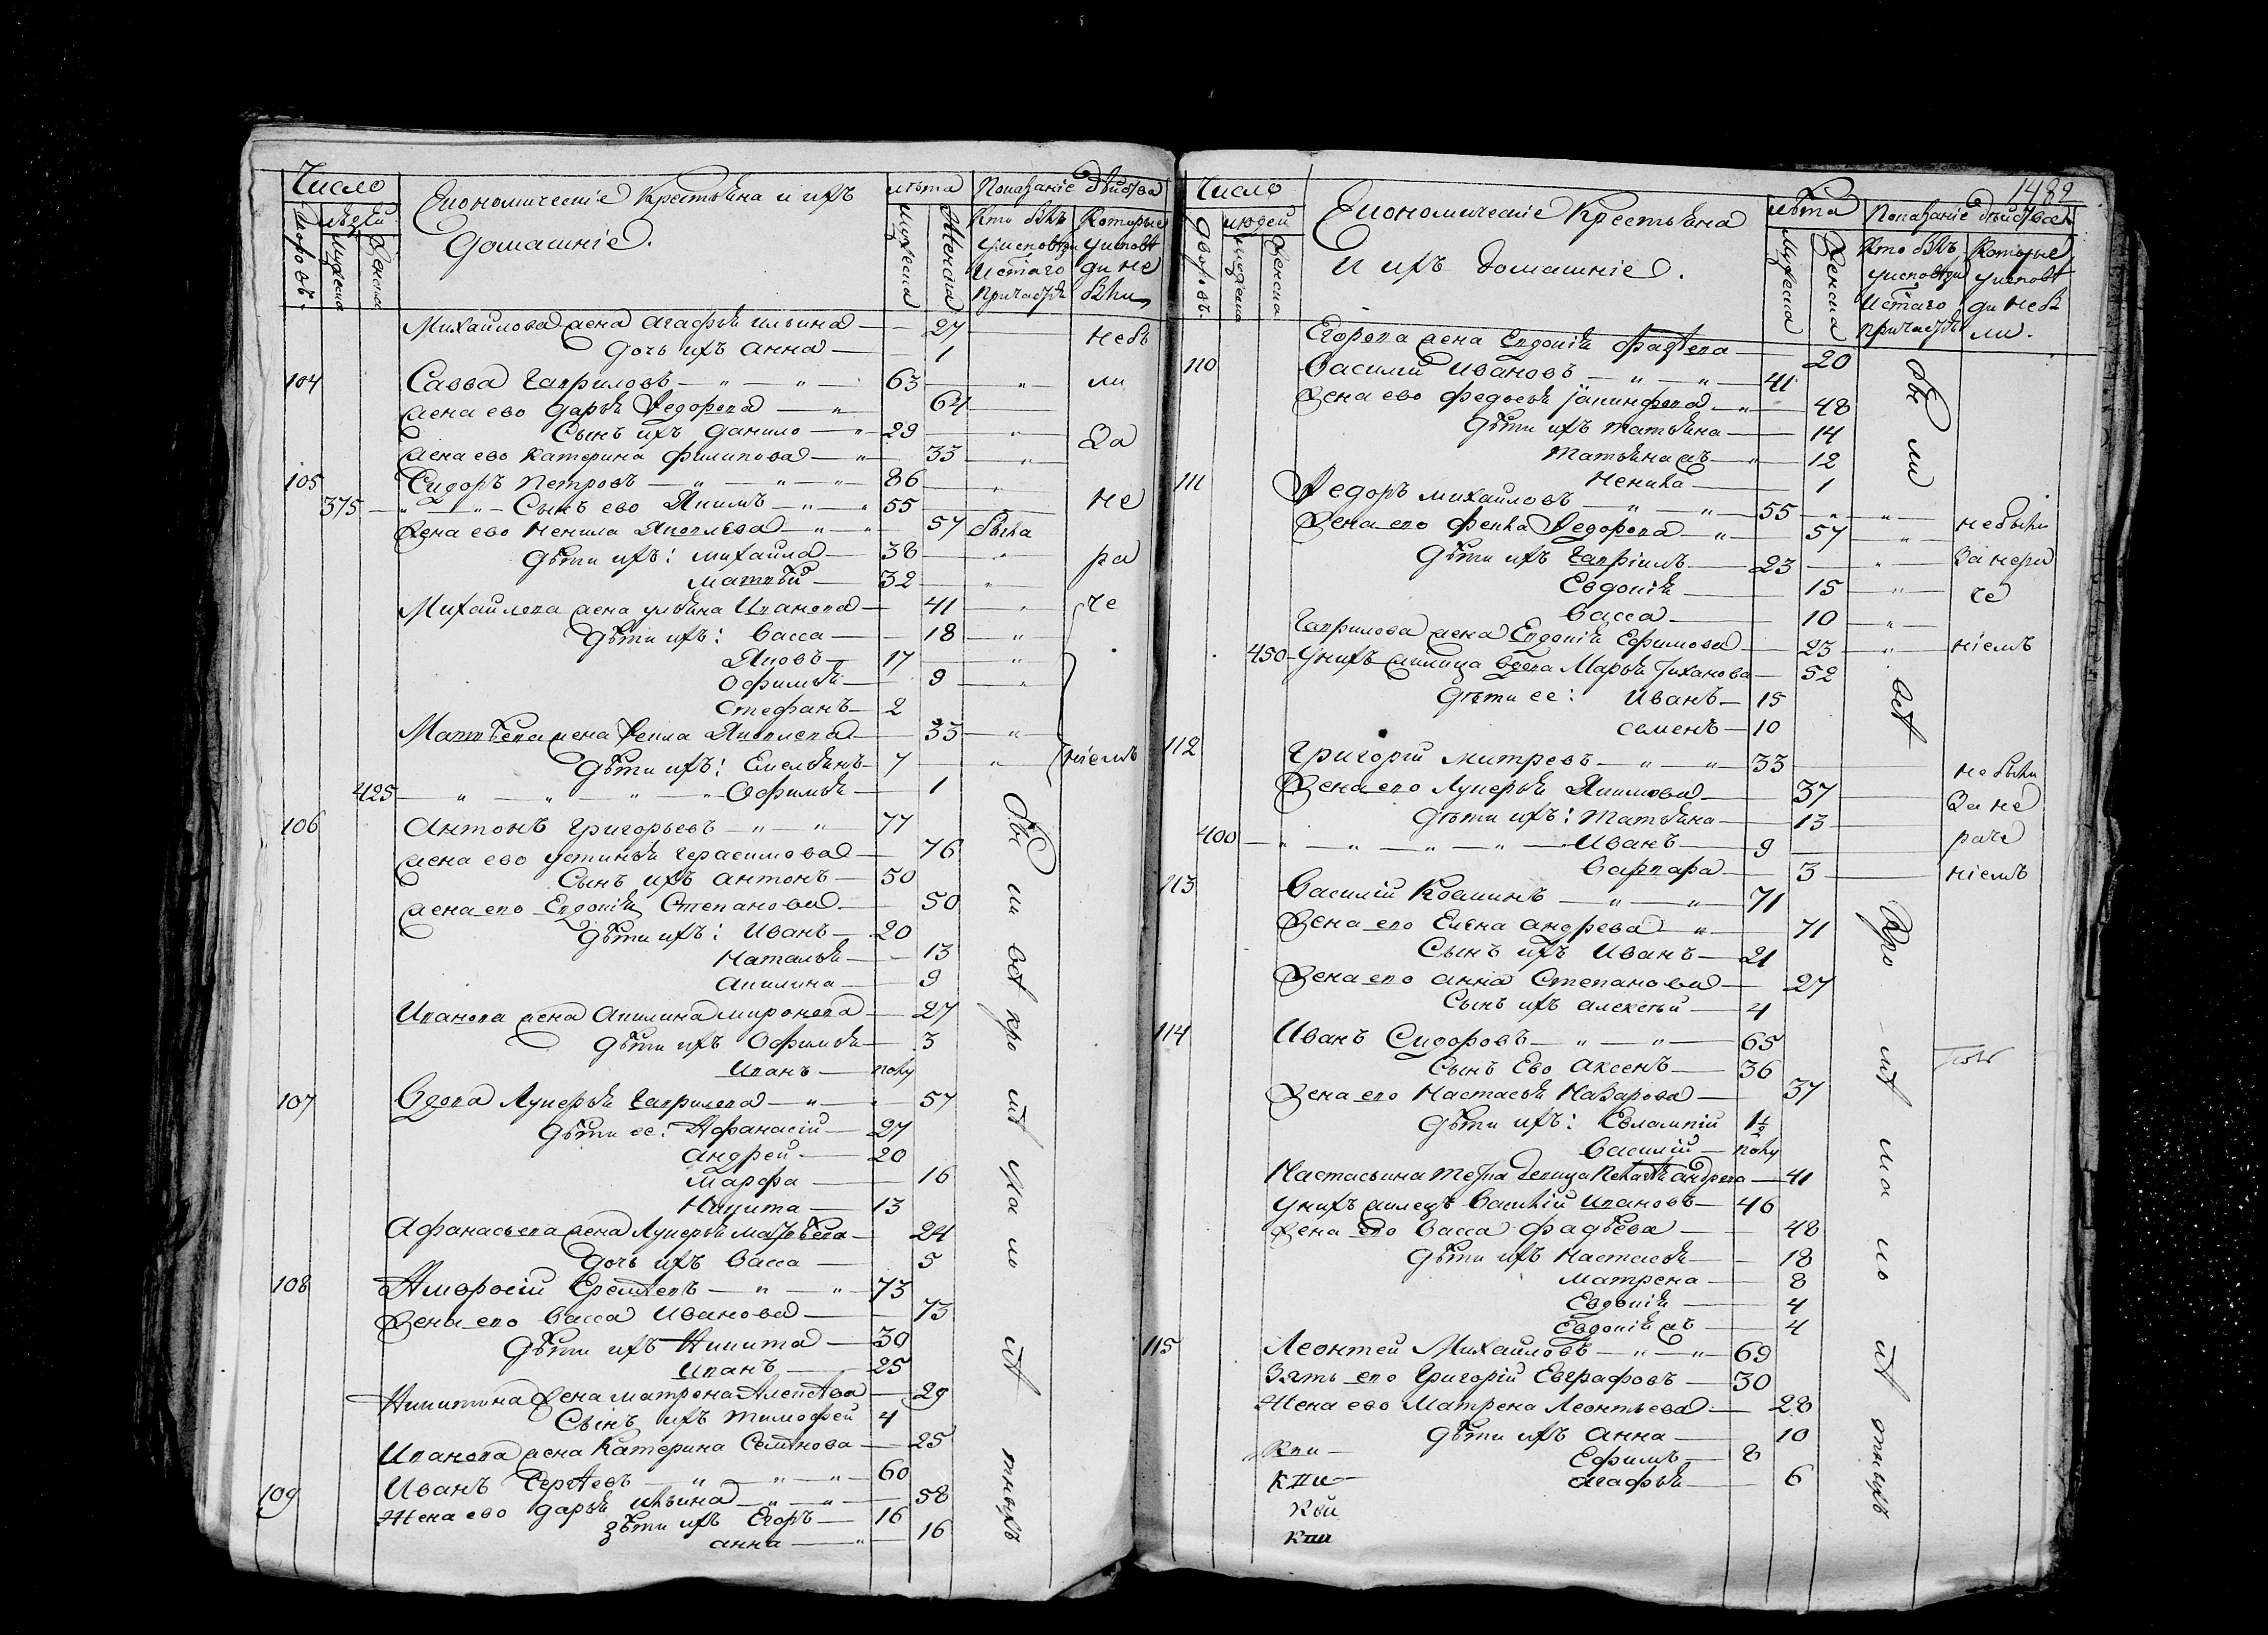 Число
людей
Дворовъ.
Мужеска
Женска
Економическіе Крестьяна и ихъ
домашніе.
лѣта
Мужеска
Женска
Показаніе дѣйства
Кто былъ
у исповѣди
и с͠таго
причастія
Которые
у исповѣ
ди не
были
Михаилова жена Агафья ильина — 27 небы
Дочь ихъ Анна — 1
104 Савва Гавриловъ — " — " — 63 — " — ли
жена ево Дарья Ѳедорова — " — 64
Сынъ ихъ Данило — " 29 — " — За
жена ево Катерина Филипова — " — 33 — "
105 Сидоръ Петровъ — " — " — " 86 — "
375 — " — " — Сынъ ево Якимъ — " — " 55 — не
Жена ево Ненила Яковлева — " — " 57 была
Дѣти ихъ: михаила — 38 — " ра
Матвѣй — 32 — "
Михаилова жена ульяна Иванова — 41 " че
Дѣти ихъ: Васса — 18 — "
Яковъ — 17 — "
Офимья — 9 — "
Стефанъ — 2
Матвѣева жена Ѳекла Яковлева — 33 — "
Дѣти ихъ: Емельянъ — 7 — " ніемъ
425 — " — " — " — " Офимья — 1
106 Антонъ Григорьевъ — " — " 77
жена ево устинья Герасимова — 76
Сынъ ихъ антонъ — 50
жена ево Евдокія Степанова — 50
Дѣти ихъ: Иванъ — 20
Наталья — 13
Акилина — 9
Иванова жена Акилина миронова — 27
Дѣти ихъ Офимья — 3
Иванъ — полу
107 Вдова Лукерья Гаврилова — " — " 57
Дѣти ее: Афанасій — 27
Андрей — 20
Марфа — 16
Никита — 13
Афанасьева жена Лукерья матвѣева — 24
Дочь ихъ Васса — 5
108 Амвросій — " — " — 73
Жена ево Васса Иванова — 73
Дѣти ихъ Никита — 30
Иванъ — 25
Никитина жена матрена Алексѣева — 29
Сынъ ихъ тимофей 4
Иванова жена Катерина Семенова — 25
109 Иванъ Сергѣевъ — " — " — " — 60
Жена ево Дарья ильина — " — " — 58
дѣти ихъ Егоръ — 16
анна — " — 16
бы ли всѣ кро мѣ ма ло лѣ тныхъ
1482
Число
людей
Дворовъ.
Мужеска
Женска
Економическіе Крестьяна
и ихъ домашніе.
лѣта
Мужеска
Женска
Показаніе дѣйства
Кто былъ
у исповѣди
и с͠таго
причастія
Которые
у исповѣ
ди небы
ли.
Егорова жена Евдокія Фадѣева — 20
110 Василій Ивановъ — " — " — 41
Жена ево Федосья — " — 48
Дѣти ихъ татьяна — 14
татьяна жъ — " — 12
Ненила — 1
111 Ѳедоръ михаиловъ — " — " — 55 — " — " —
Жена ево Фекла Ѳедорова — " — 57 — " — небыли
Дѣти ихъ Гавріилъ — 23 — " — За нера
Евдокія — 15 — " — че
Васса — 10 — "
Гаврилова жена Евдокія Ефимова — 23 — " — ніемъ
450 — У нихъ жилица вдова Марья Тиханова — 52
Дѣти ее: Иванъ — 15
семенъ — 10
112 Григорій митревъ — " — " — 33
небыли
Жена ево Лукерья Якимова — 37 За не
Дѣти ихъ: татьяна — 13
400 — " — " — " — " — Иванъ — 9 раче
Варвара — 3 — ніемъ
113 Василій Козминъ — " — " — 71
Жена ево Елена андреева — " — 71
Сынъ ихъ Иванъ — 21
Жена ево анна Степанова — 27
Сынъ ихъ алексѣй — 4
114 Иванъ Сидоровъ — " — " — 65
Сынъ Ево аксенъ — 36
Жена ево Настасья Назарова — 37
Дѣти ихъ: Евлампій 1½
Василій — полу
Настасьина девица андреева — 41
У нихъ жилецъ Василій Ивановъ — 46
Жена ево Васса Фадѣева — 48
Дѣти ихъ Настасья — 18
Матрена — 8
Евдокія — 4
Евдокія жъ — 4
115 Леонтей Михаиловъ — " — " — 69
Зять ево Григорій Евграфовъ — 30
Жена ево Матрена Леонтьева — 28
Дѣти ихъ Анна — 10
Ефимъ — 8
агафья — 6
бы ли всѣ кро мѣ ма ло лѣ тныхъ